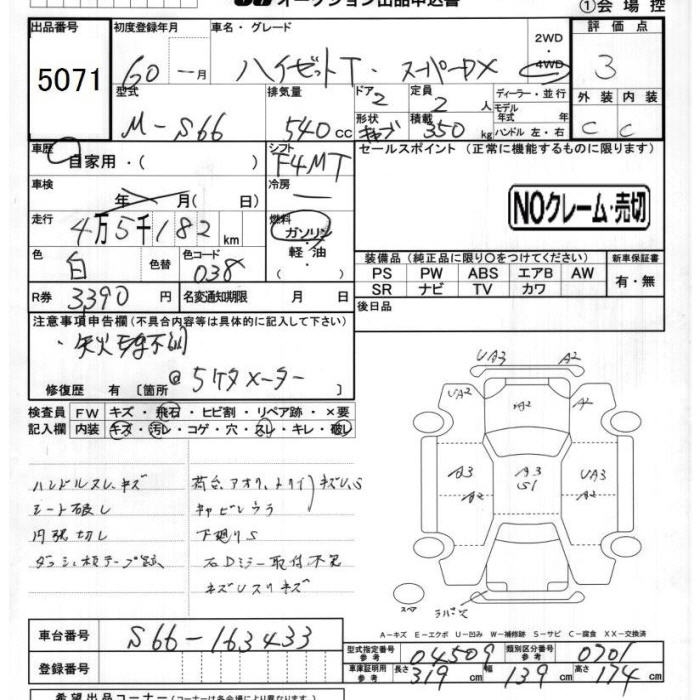 オークション出品申込書
①会場控
出品番号 初度登録年月 車名・グレード 2WD・4WD 評価点
5071 60 ー月 ハイゼットT・スーパーDX 3
型式 排気量 ドア 定員 ディーラー・並行 外装 内装
M-S66 540cc 2 2人 モデル年式 年 C C
形状 積載 350kg ハンドル 左・右
車歴 自家用・( ) シフト F4MT セールスポイント (正常に機能するものに限ります)
車検 年 月(日) 冷房 ー
NOクレーム・売切
走行 4万5千182km 燃料 ガソリン・軽油 ( )
色 白 色替 色コード 038
装備品 (純正品に限り○をつけてください) 新車保証書
PS PW ABS エアB AW 有・無
SR ナビ TV カワ
R券 3390円 名変通知期限 月 日 後日品
注意事項申告欄(不具合内容等は具体的に記入して下さい)
@5ケタメーター
修復歴 有 [箇所
検査員 FW キズ・飛石・ヒビ割・リペア跡・×要
記入欄 内装 キズ・汚レ・コゲ・穴・スレ・キレ・破レ
UA3 A2
UA2 A2 A2
ハンドルスレ、キズ
シート破レ キャビンウラ
下廻りS
右Dミラー取付不良
A3 A2 A3 S1 UA3 A2
スペア
A-キズ E-エクボ U-凹み W-補修跡 S-サビ C-腐食 XX-交換済
車台番号 S66-163433
型式指定番号 参考 04509 類別区分番号 参考 0701
登録番号 車庫証明用 参考 長さ 319cm 幅 139cm 高さ 174cm
希望出品コーナー(コーナーは各会場により異なります)